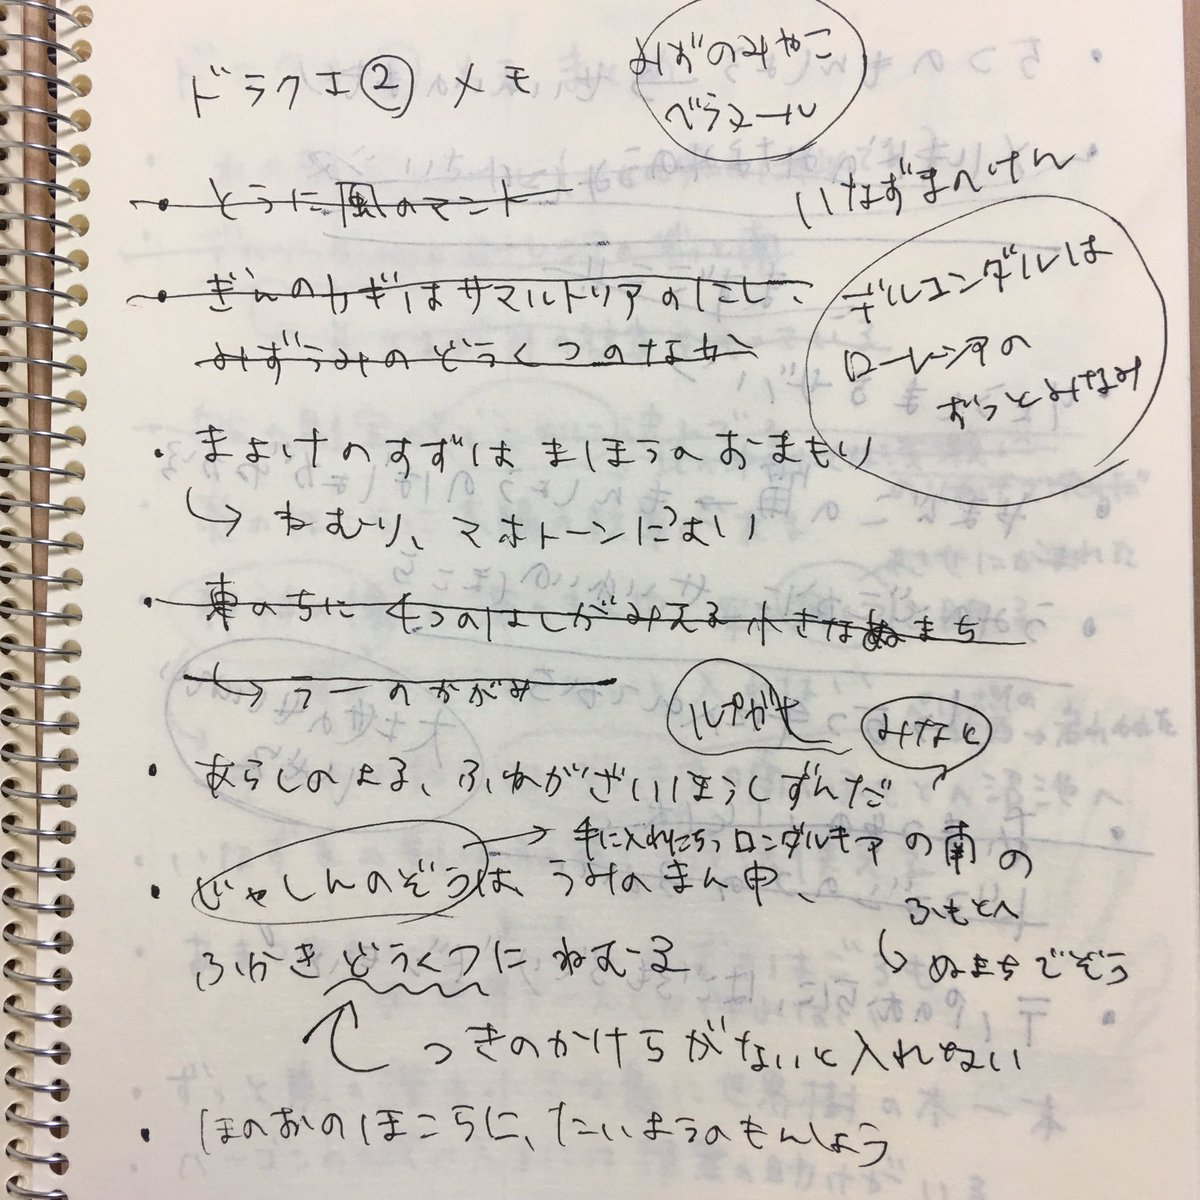 ドラクエ② メモ
みずのみやこ
べラヌール
いなずまのけん
・とうに風のマント
・ぎんのカギはサマルトリアのにし、
みずうみのどうくつのなか
デルコンダルは
ローレシアの
ずっとみなみ
・まよけのすずはまほうのおまもり
↳ ねむり、マホトーンにつよい
・東のちに4つのはしがみえる小さなぬまち
↳ ラーのかがみ
ルプガナ
みなと
・あらしのよる、ふねがざいほうしずんだ
→ 手に入れたらロンダルキアの南の
ふもとへ
↳ ぬまちでぞう
・じゃしんのぞうは、うみのまん中、
ふかきどうくつにねむる
つきのかけらがないと入れない
・ほのおのほこらに、たいようのもんしょう